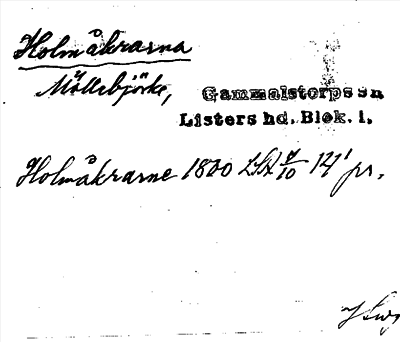 Holmåkrarna
Möllebjörke,
Gammalstorps sn
Listers hd. Blek. l.
Holmåkrarne 1800 LSA 9/10 141' pr.